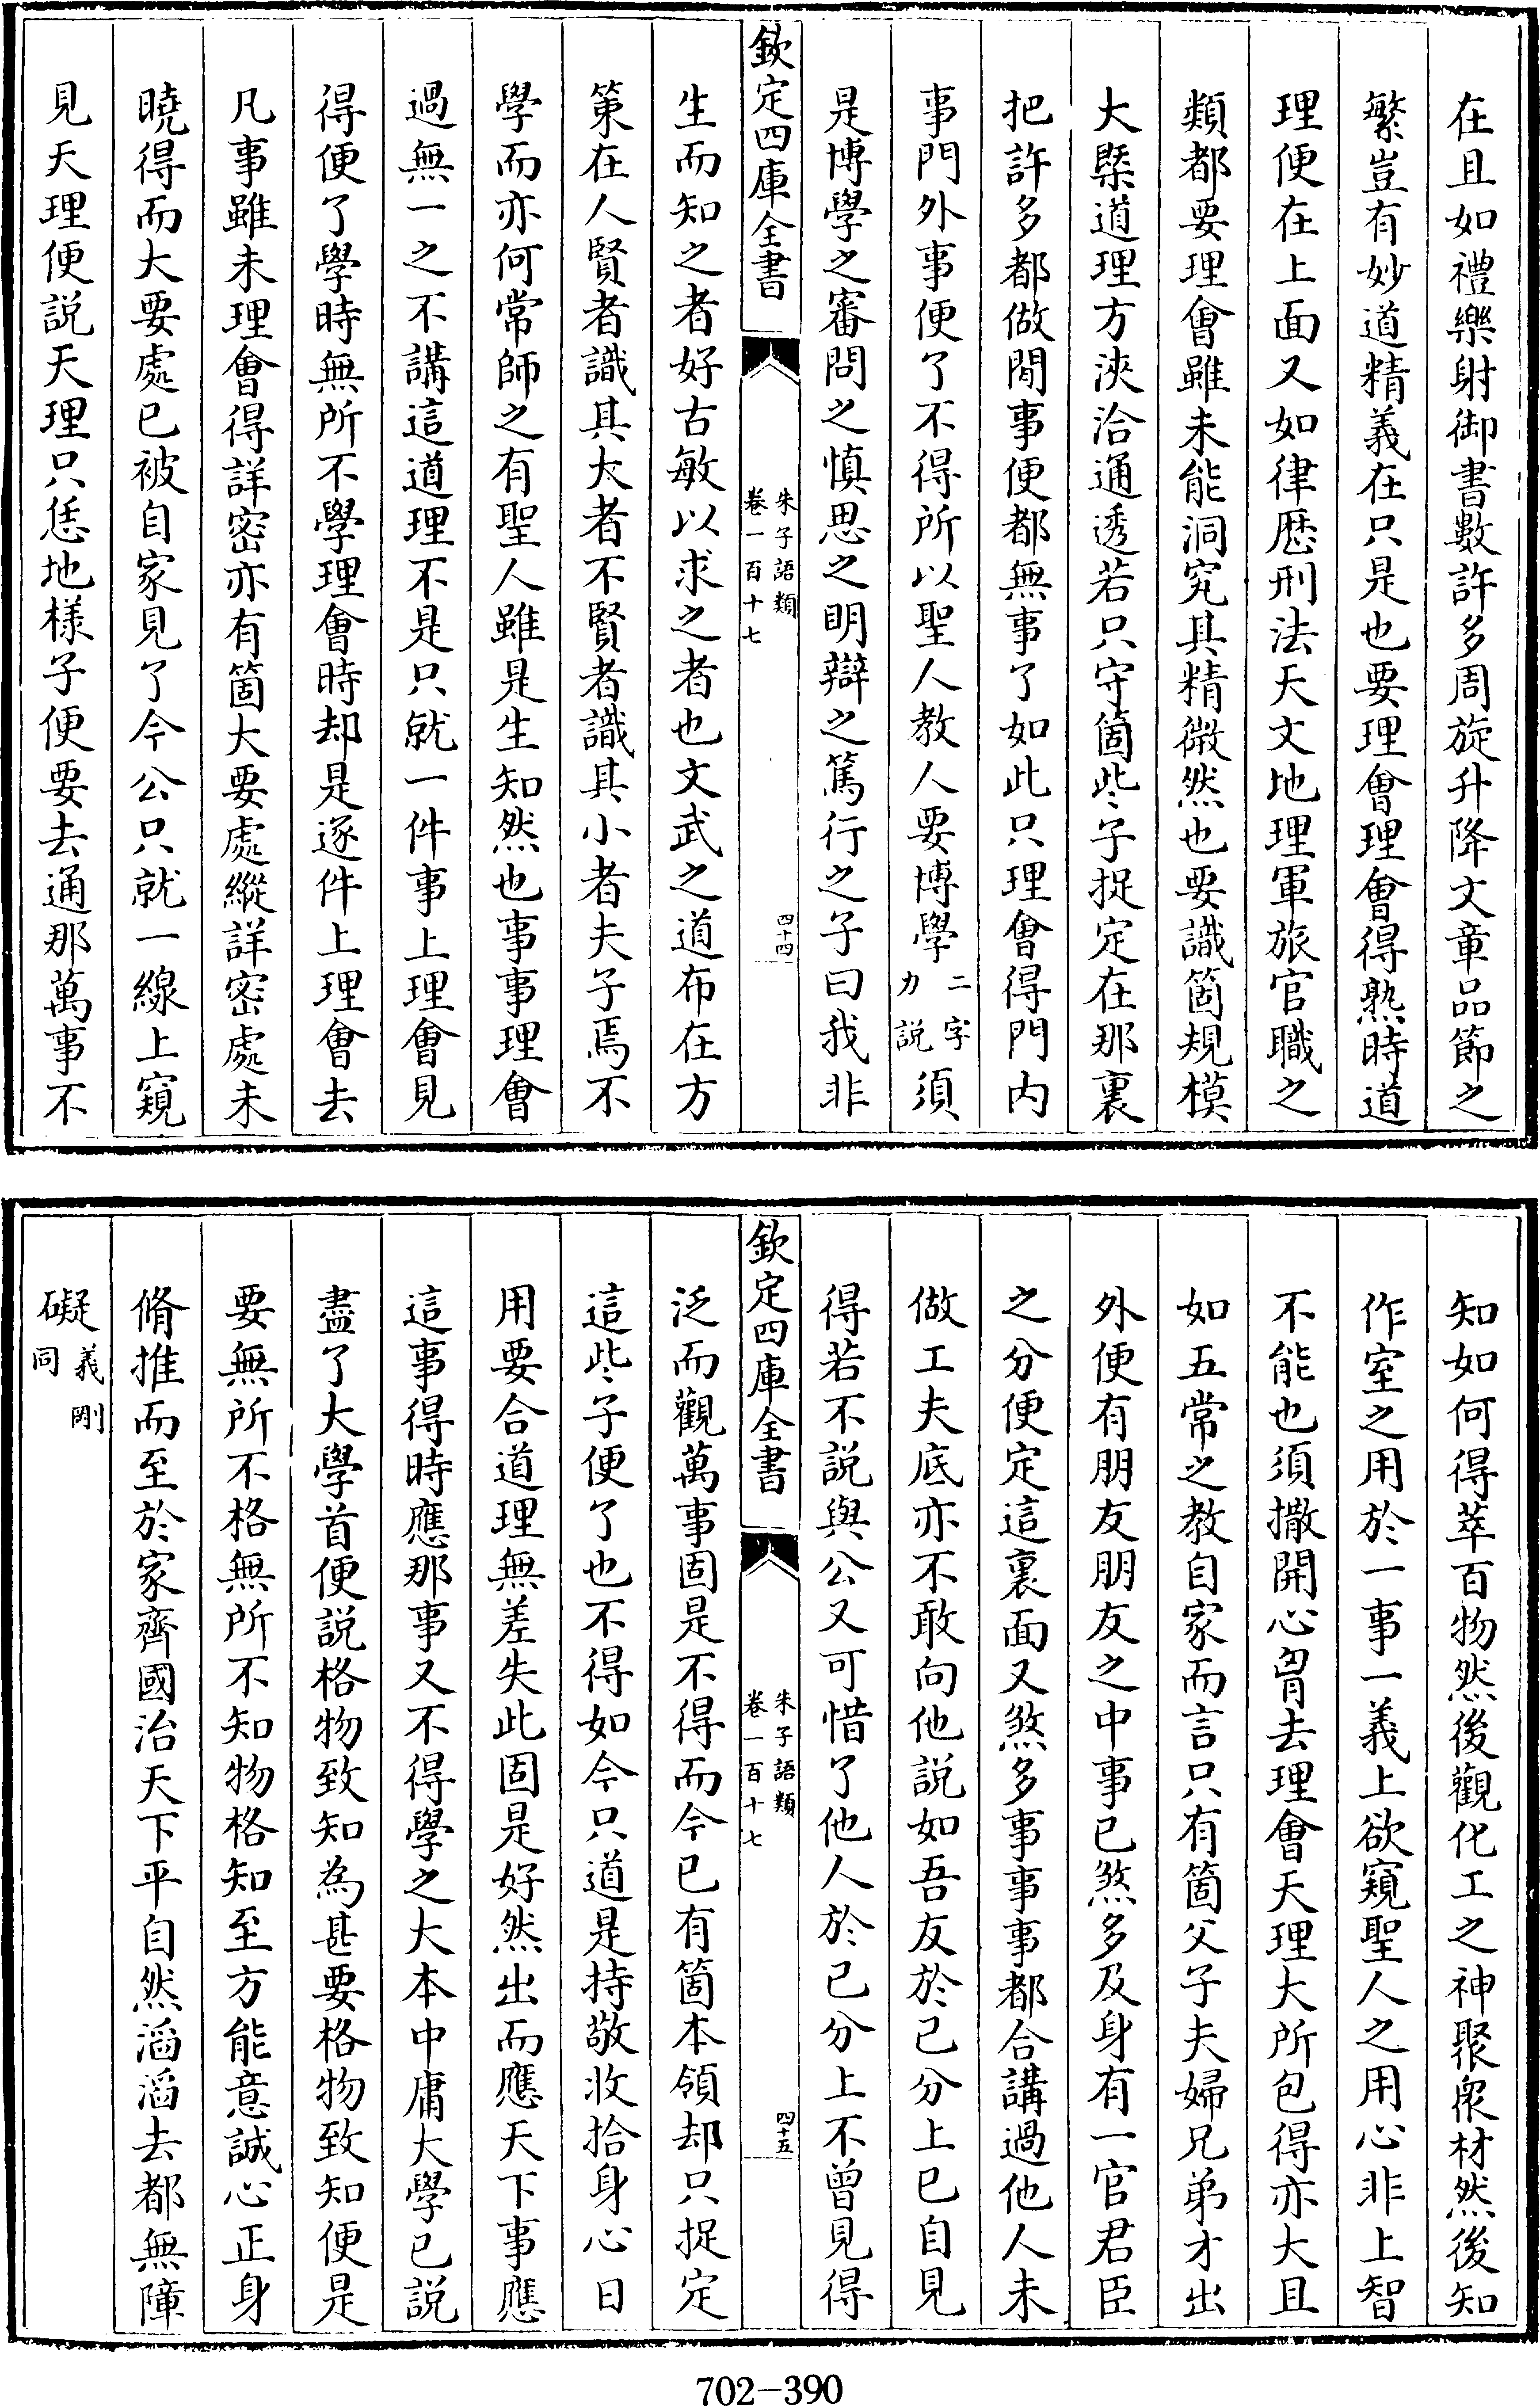 在且如禮樂射御書數許多周旋升降文章品節之
繁豈有妙道精義在只是也要理會理會得熟時道
理便在上面又如律厯刑法天文地理軍旅官職之
類都要理會雖未能洞究其精微然也要識箇規模
大槩道理方浹洽通透若只守箇些子捉定在那裏
把許多都做閒事便都無事了如此只理會得門内
事門外事便了不得所以聖人教人要博學二字力説須
是博學之審問之慎思之明辯之篤行之子曰我非
欽定四庫全書
朱子語類
卷一百十七
四十四
生而知之者好古敏以求之者也文武之道布在方
策在人賢者識其大者不賢者識其小者夫子焉不
學而亦何常師之有聖人雖是生知然也事事理會
過無一之不講這道理不是只就一件事上理會見
得便了學時無所不學理會時却是逐件上理會去
凡事雖未理會得詳密亦有箇大要處縱詳密處未
曉得而大要處已被自家見了今公只就一線上窺
見天理便説天理只恁地様子便要去通那萬事不
知如何得萃百物然後觀化工之神聚衆材然後知
作室之用於一事一義上欲窺聖人之用心非上智
不能也須撒開心胷去理會天理大所包得亦大且
如五常之教自家而言只有箇父子夫婦兄弟才出
外便有朋友朋友之中事已煞多及身有一官君臣
之分便定這裏面又煞多事事事都合講過他人未
做工夫底亦不敢向他説如吾友於己分上已自見
得若不説與公又可惜了他人於己分上不曾見得
欽定四庫全書
朱子語類
卷一百十七
四十五
泛而觀萬事固是不得而今已有箇本領却只捉定
這些子便了也不得如今只道是持敬收拾身心日
用要合道理無差失此固是好然出而應天下事應
這事得時應那事又不得學之大本中庸大學已説
盡了大學首便説格物致知為甚要格物致知便是
要無所不格無所不知物格知至方能意誠心正身
脩推而至於家齊國治天下平自然滔滔去都無障
礙義剛同
702-390